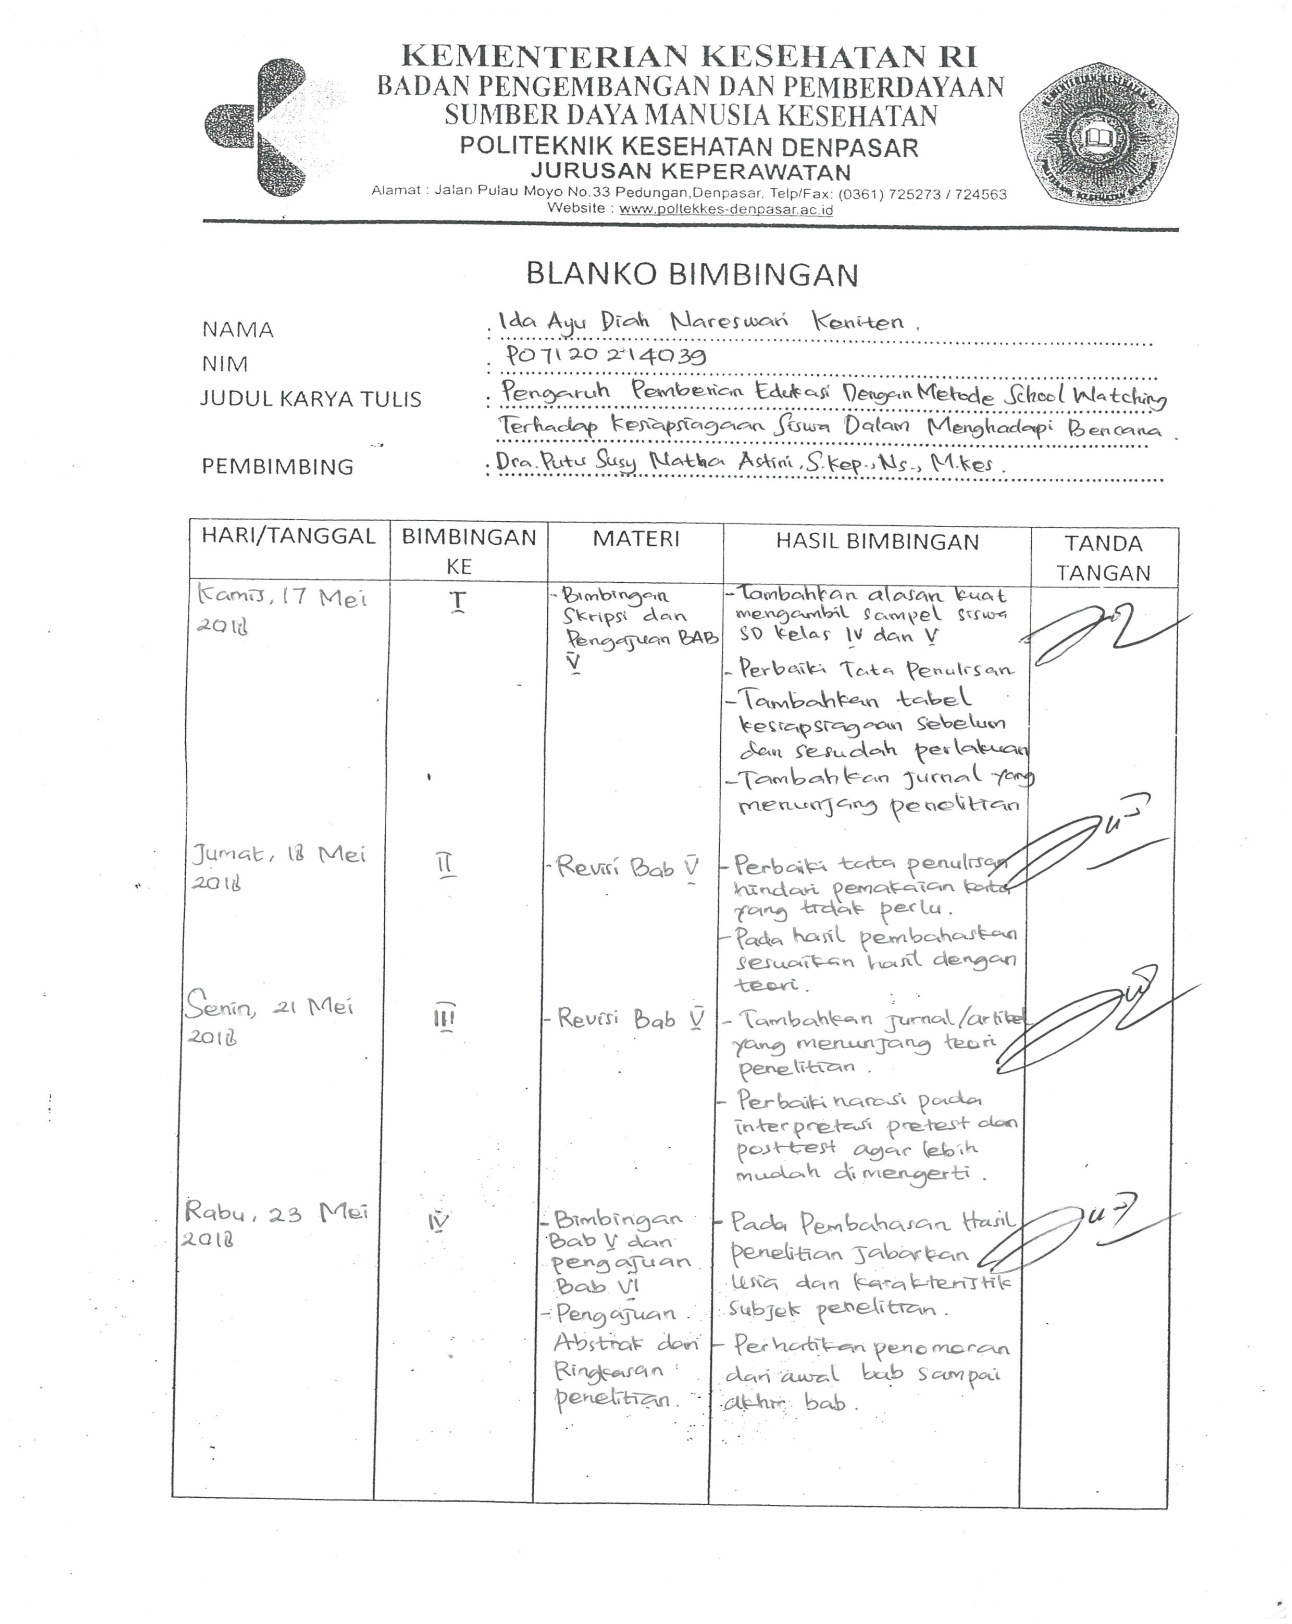 KEMENTERIAN KESEHATAN RI
BADAN PENGEMBANGAN DAN PEMBERDAYAAN
SUMBER DAYA MANUSIA KESEHATAN
POLITEKNIK KESEHATAN DENPASAR
JURUSAN KEPERAWATAN
Alamat : Jalan Pulau Moyo No.33 Pedungan,Denpasar, Telp/Fax: (0361) 725273 / 724563
Website : www.poltekkes-denpasar.ac.id
BLANKO BIMBINGAN
NAMA : Ida Ayu Diah Nareswari Keniten.
NIM : P07120214039
JUDUL KARYA TULIS : Pengaruh Pemberian Edukasi Dengan Metode School Watching
Terhadap Kesiapsiagaan Siswa Dalam Menghadapi Bencana.
PEMBIMBING : Dra. Putu Susy Natha Astini, S.Kep., Ns., M.Kes.
HARI/TANGGAL BIMBINGAN KE MATERI HASIL BIMBINGAN TANDA TANGAN
Kamis, 17 Mei
2018
I
- Bimbingan
Skripsi dan
Pengajuan BAB
V
- Tambahkan alasan kuat
mengambil sampel siswa
SD Kelas IV dan V
- Perbaiki Tata Penulisan
- Tambahkan tabel
kesiapsiagaan sebelum
dan sesudah perlakuan
- Tambahkan jurnal yang
menunjang penelitian
Jumat, 18 Mei
2018
II
- Revisi Bab V
- Perbaiki tata penulisan
hindari pemakaian kata
yang tidak perlu.
- Pada hasil pembahaskan
sesuaikan hasil dengan
teori.
Senin, 21 Mei
2018
III
- Revisi Bab V
- Tambahkan jurnal/artikel
yang menunjang teori
penelitian.
- Perbaiki narasi pada
interpretasi pretest dan
posttest agar lebih
mudah dimengerti.
Rabu, 23 Mei
2018
IV
- Bimbingan
Bab V dan
pengajuan
Bab VI
- Pengajuan
Abstrak dan
Ringkasan
penelitian.
- Pada Pembahasan Hasil
penelitian Jabarkan
usia dan karakteristik
subjek penelitian.
- Perhatikan penomoran
dari awal bab sampai
akhir bab.